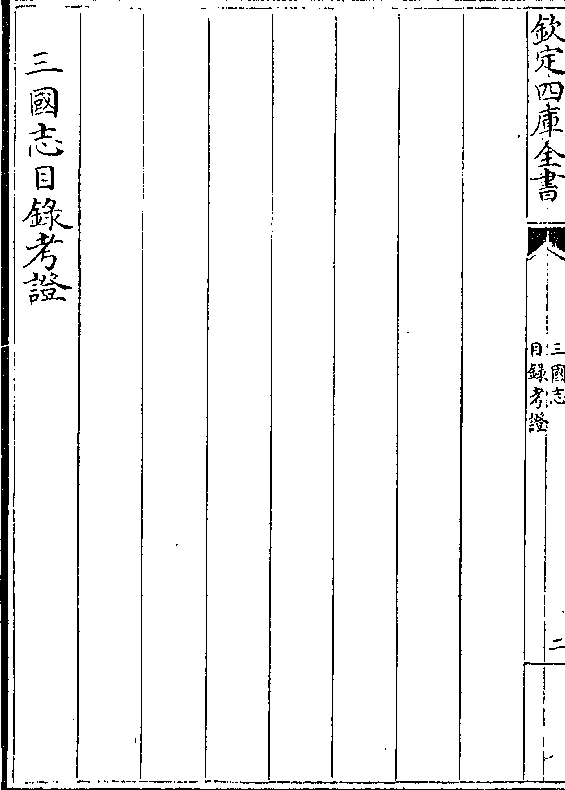 欽定四庫全書
三國志
目錄考證
二
三國志目錄考證